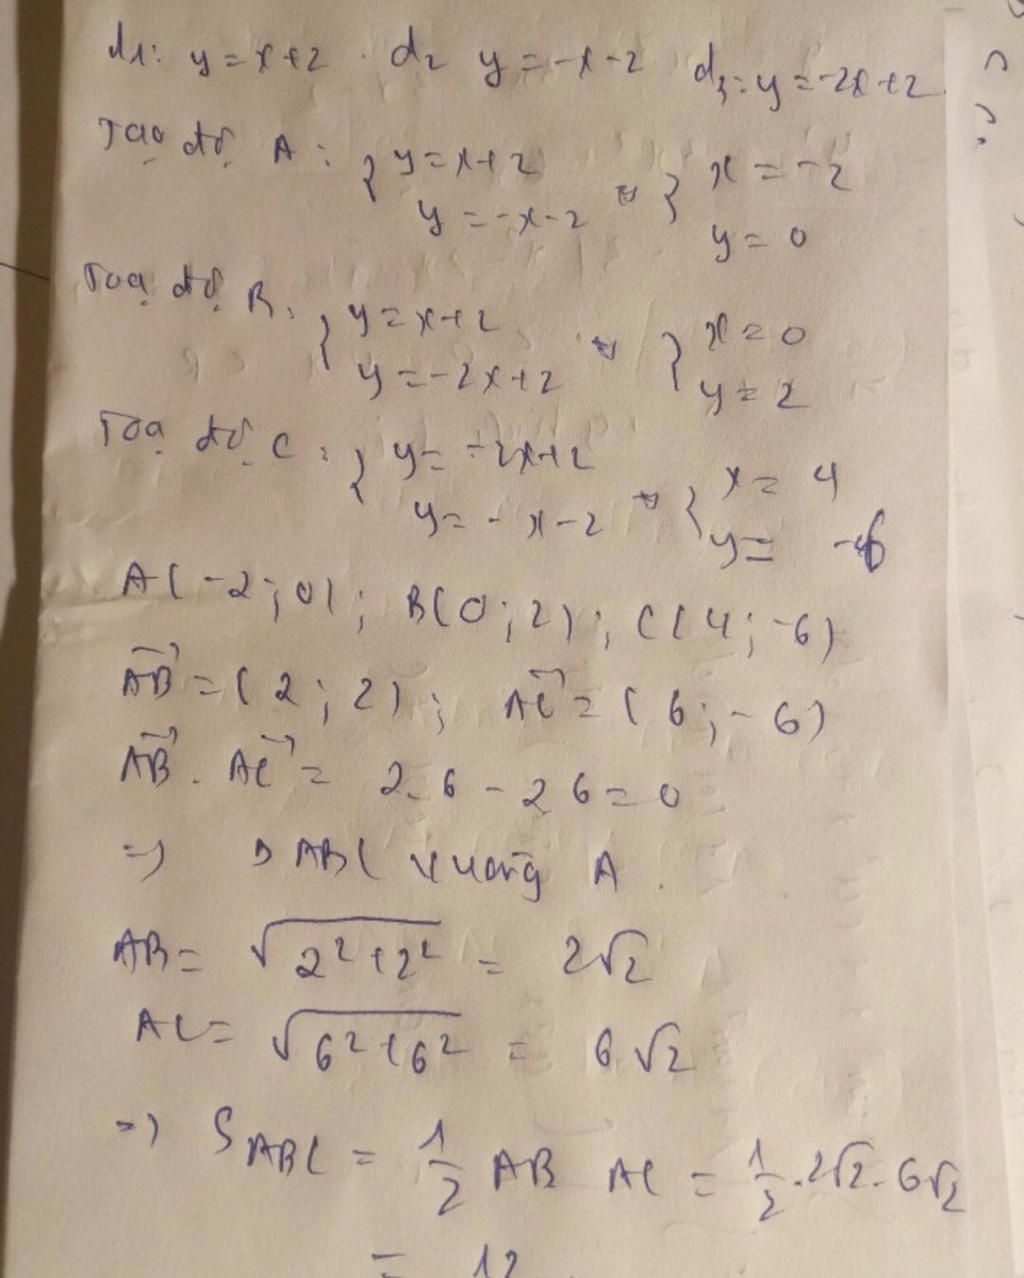 d1: y = x+2 . d2 y = -x-2 d3: y = -2x+2
Toạ độ A : { y = x+2
y = -x-2 ⇔ { x = -2
y = 0
Toạ độ B : { y = x+2
y = -2x+2 ⇔ { x = 0
y = 2
Toạ độ C : { y = -2x+2
y = -x-2 ⇔ { x = 4
y = -6
A(-2; 0); B(0; 2); C(4; -6)
AB→ = (2; 2); AC→ = (6; -6)
AB→ . AC→ = 2.6 - 2 6 = 0
=> Δ ABC vuông A .
AB = √(2²+2²) = 2√2
AC = √(6²+6²) = 6√2
=> S ABC = 1/2 AB AC = 1/2 . 2√2 . 6√2
= 12